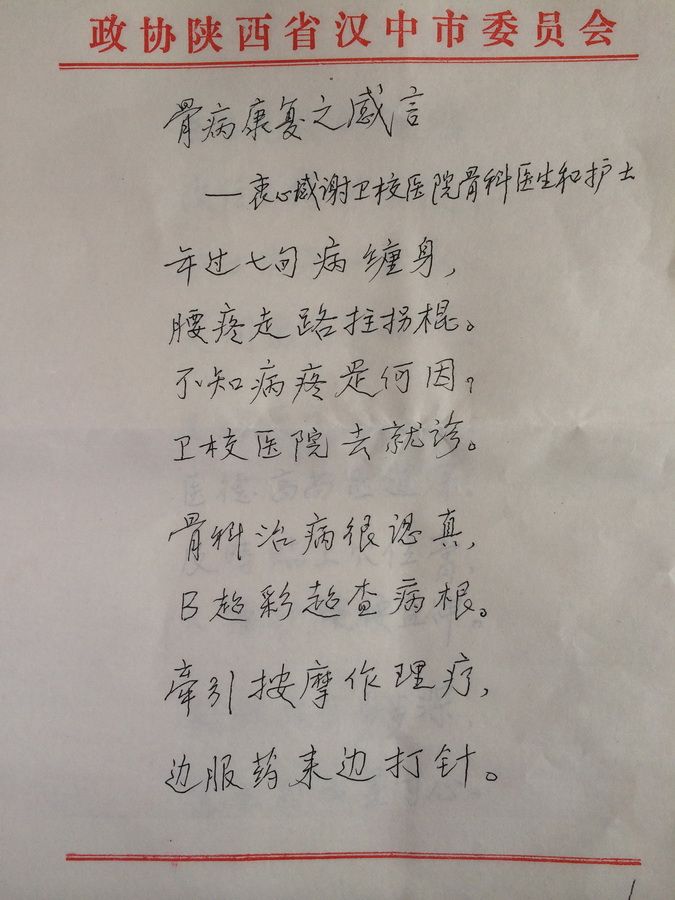 政协陕西省汉中市委员会
骨病康复之感言
—衷心感谢卫校医院骨科医生和护士
年过七旬病缠身，
腰疼走路拄拐棍。
不知病疼是何因？
卫校医院去就诊。
骨科治病很认真，
B超彩超查病根。
牵引按摩作理疗，
边服药来边打针。
1